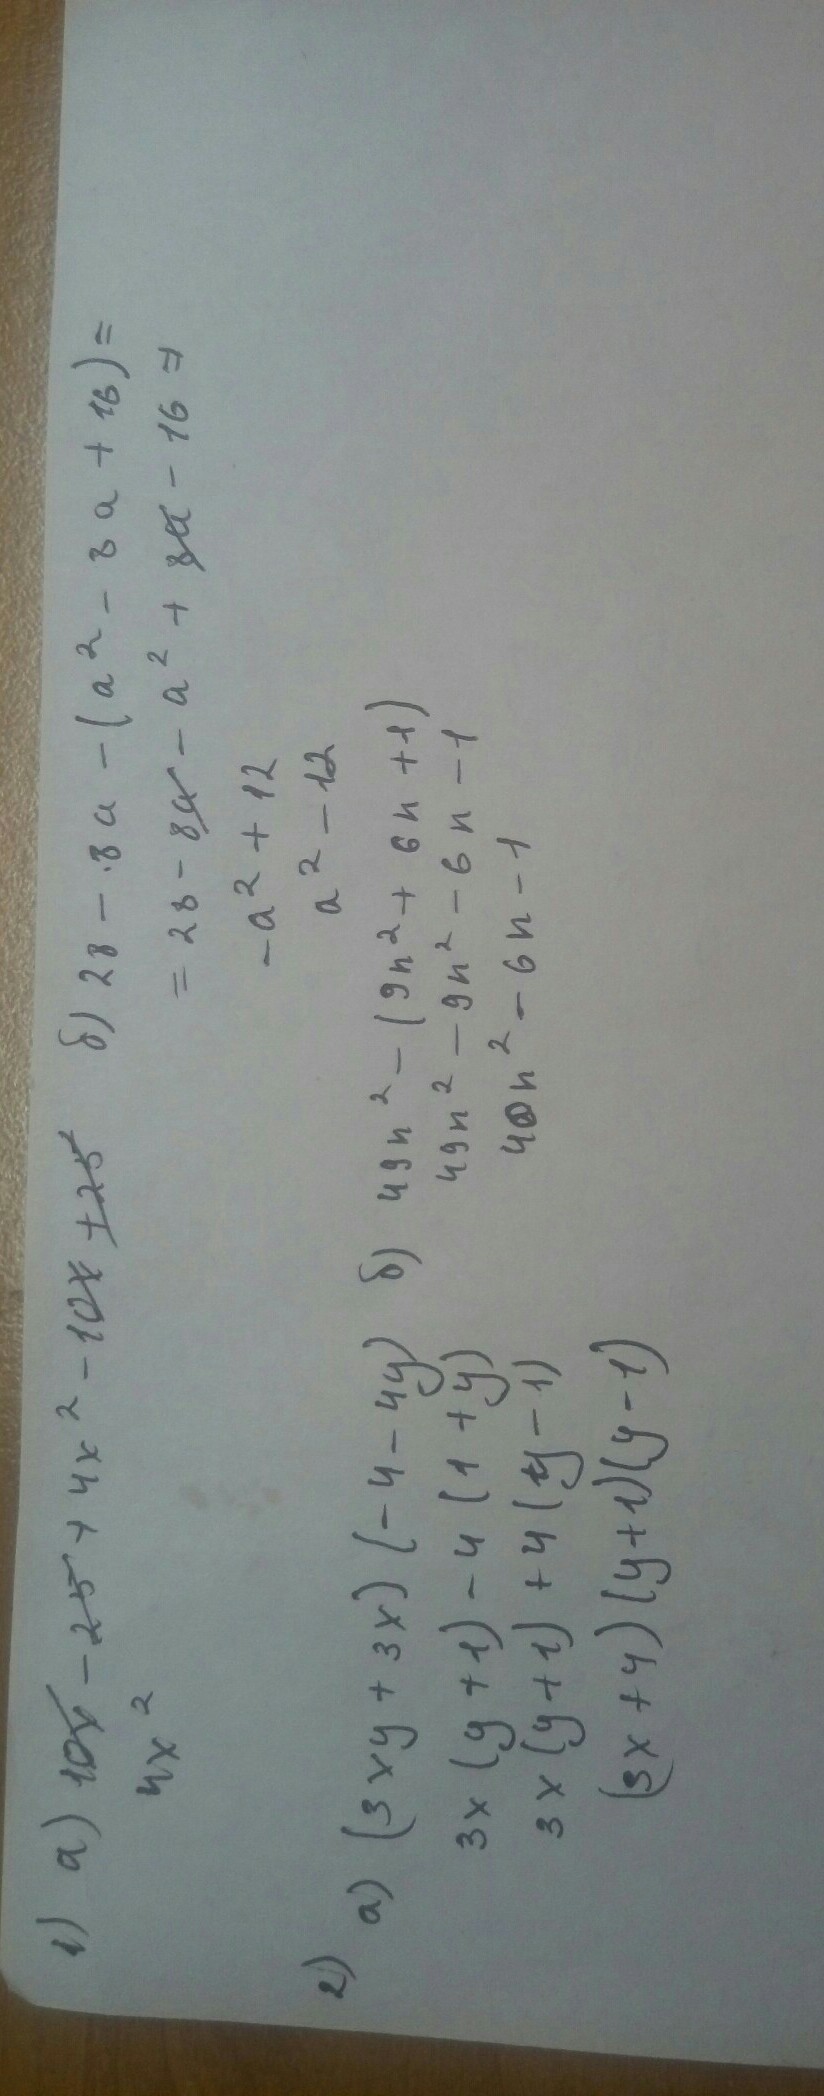 1) а) 10x - 25 + 4x² - 10x + 25
4x²
б) 28 - 8a - (a² - 8a + 16) =
= 28 - 8a - a² + 8a - 16 =
-a² + 12
a² - 12
2) а) (3xy + 3x) (-4 - 4y)
3x (y + 1) - 4 (1 + y)
3x (y + 1) + 4 (y - 1)
(3x + 4) (y + 1) (y - 1)
б) 49n² - (9n² + 6n + 1)
49n² - 9n² - 6n - 1
40n² - 6n - 1